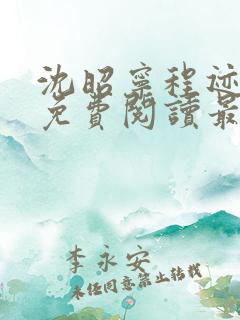 沈昭寧程迹
免費閱讀最
李永安
未經同意禁止轉載